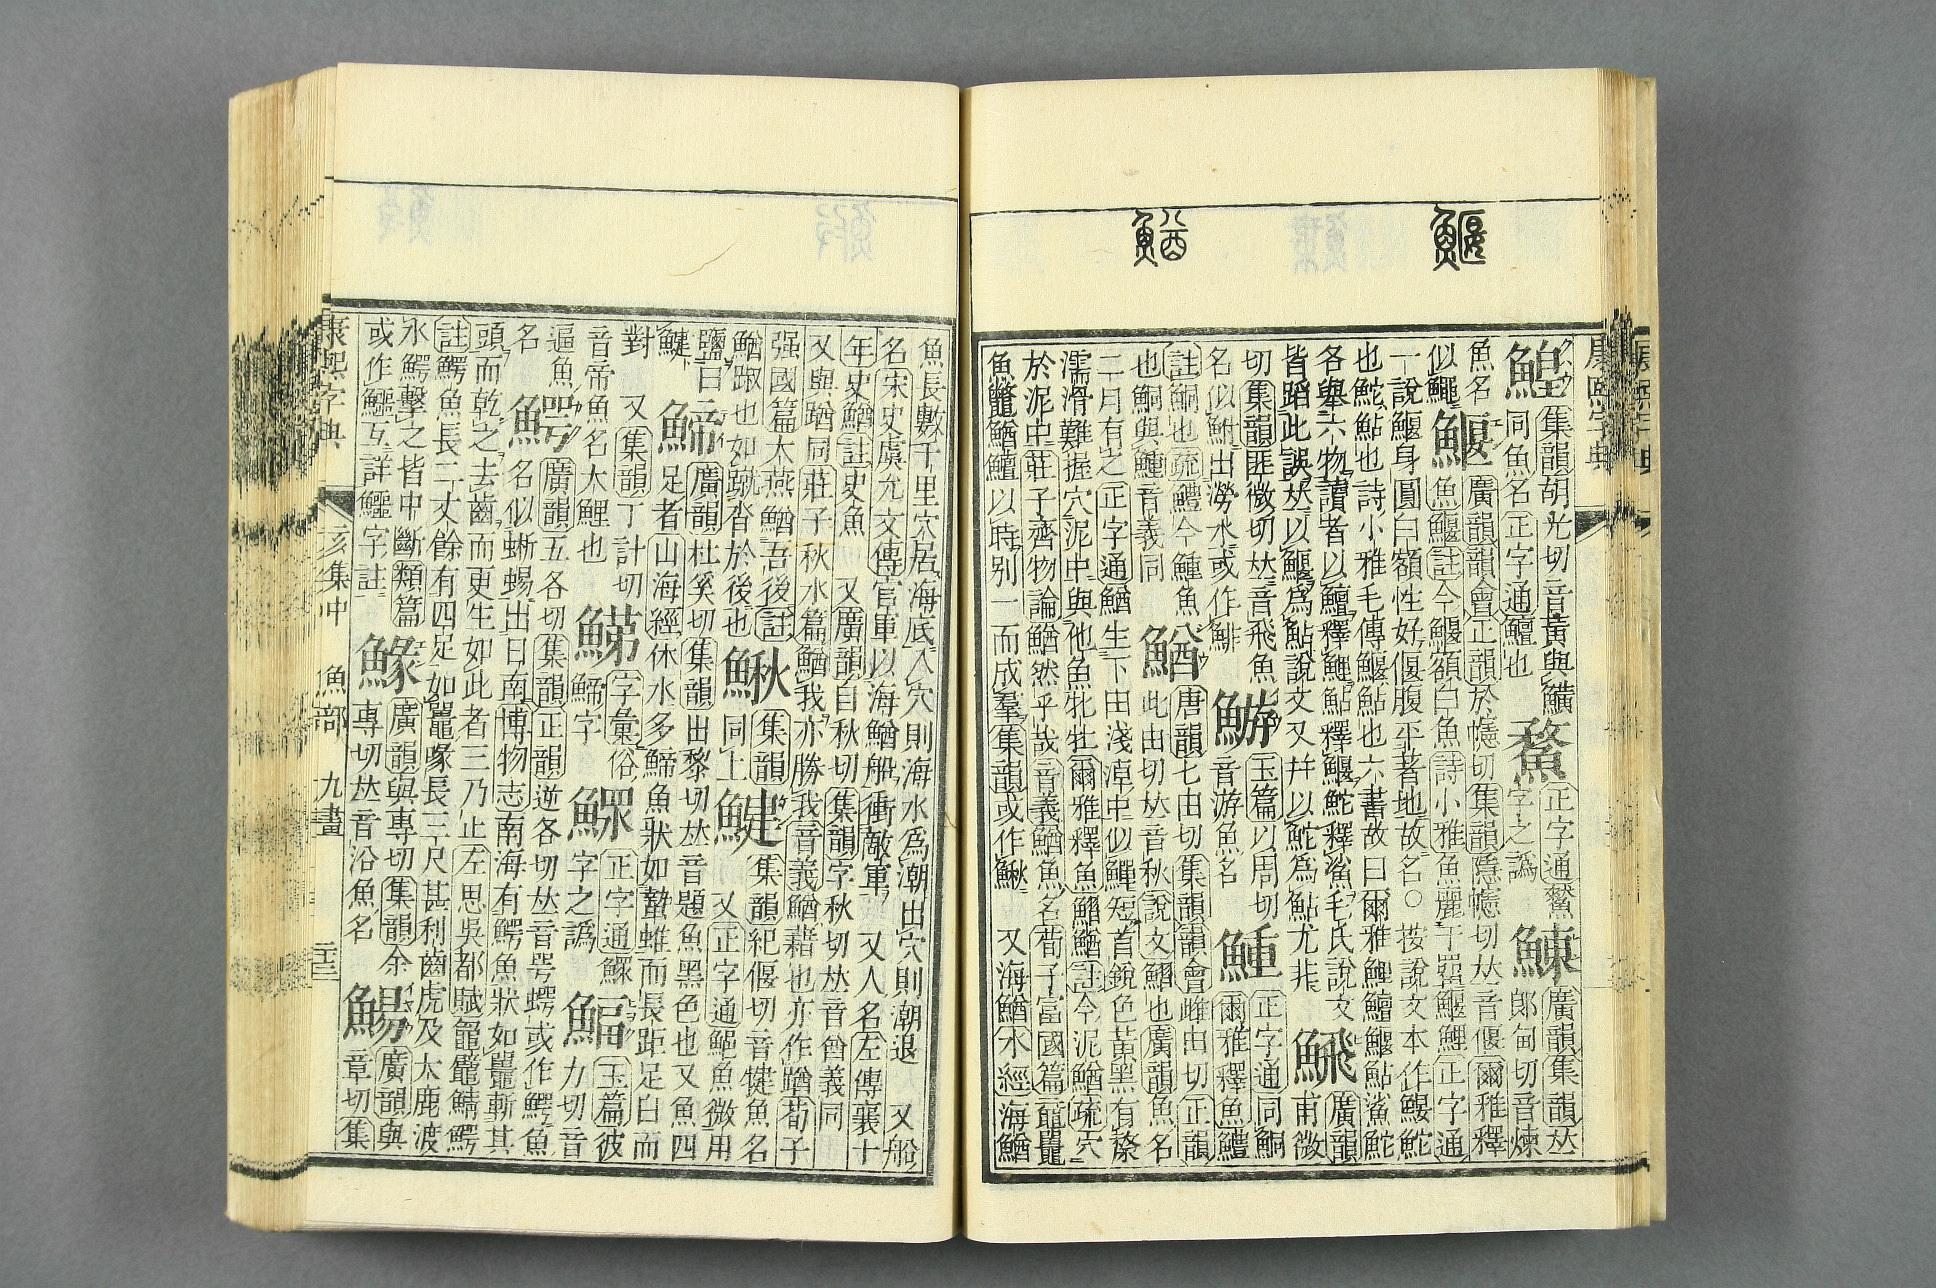 鰋
鰌
鰉 集韻胡光切音黃與鱑
同魚名正字通鱣也 鰲 正字通鰲
字之譌 鰊 廣韻集韻𠀤
郎甸切音煉
魚名
似鱦 鰋 廣韻韻會正韻於幰切集韻隱幰切𠀤音偃爾雅釋
魚鰋註今鰋額白魚詩小雅魚麗于罶鰋鯉正字通
一說鰋身圓白額性好偃腹平著地故名○按說文本作鰋鮀
也鮀鮎也詩小雅毛傳鰋鮎也六書故曰爾雅鯉鱣鰋鮎鯊鮀
各舉六物讀者以鱣釋鯉鮎釋鰋鮀釋鯊魚毛氏說文
皆蹈此誤𠀤以鰋爲鮎說文又幷以鮀爲鮎尤非 䬠 廣韻
甫微
切集韻匪微切𠀤音飛魚
名似鮒出澇水或作鯡 䱻 玉篇以周切
音游魚名 䱰 正字通同鮦
爾雅釋魚鱧
註鮦也疏鱧今鯶魚
也鮦與鯶音義同 鰌 唐韻七由切集韻韻會雌由切正韻
此由切𠀤音秋說文鰼也廣韻魚名
二月有之正字通鰌生下田淺淖中似鱓短首銳色黃黑有漦
濡滑難握穴泥中與他魚牝牡爾雅釋魚鰼鰌註今泥鰌疏穴
於泥中莊子齊物論鰌然乎哉音義鰌魚名荀子富國篇黿鼉
魚鱉鰌鱣以時別一而成羣集韻或作鰍 又海鰌水經海鰌
魚長數千里穴居海底入穴則海水爲潮出穴則潮退 又船
名宋史虞允文傳官軍以海鰌船衝敵軍 又人名左傳襄十
年史鰌註史魚 又廣韻自秋切集韻字秋切𠀤音酋義同
又與蹈同莊子秋水篇鰌我亦勝我音義鰌藉也亦作蹈荀子
强國篇大燕鰌吾後註
鰌蹴也如蹴沓於後也 鰍 集韻
同上 鰎 集韻紀偃切音犍魚名
又正字通鰎魚微用
鹽曰
鰎 鯑 廣韻杜奚切集韻田黎切𠀤音題魚黑色也又魚四
足者山海經休水多鯑魚狀如蟄蜼而長距足白而
對 又集韻丁計切
音帝魚名大鯉也 䱱 字彙俗
鯑字 鰥 正字通鰥
字之譌 鰏 玉篇彼
力切音
逼魚
名 鰐 廣韻五各切集韻正韻逆各切𠀤音咢蝁或作鱷魚
名似蜥蜴出日南博物志南海有鰐魚狀如鼉斬其
頭而乾之去齒而更生如此者三乃止左思吳都賦䵶鼊鯖鰐
註鰐魚長二丈餘有四足如鼉喙長三尺甚利齒虎及大鹿渡
水鰐擊之皆中斷類篇
或作鱷互詳鱷字註 䱲 廣韻與專切集韻余
專切𠀤音沿魚名 䱾 廣韻與
章切集
康熙字典
亥集中 魚部 九畫